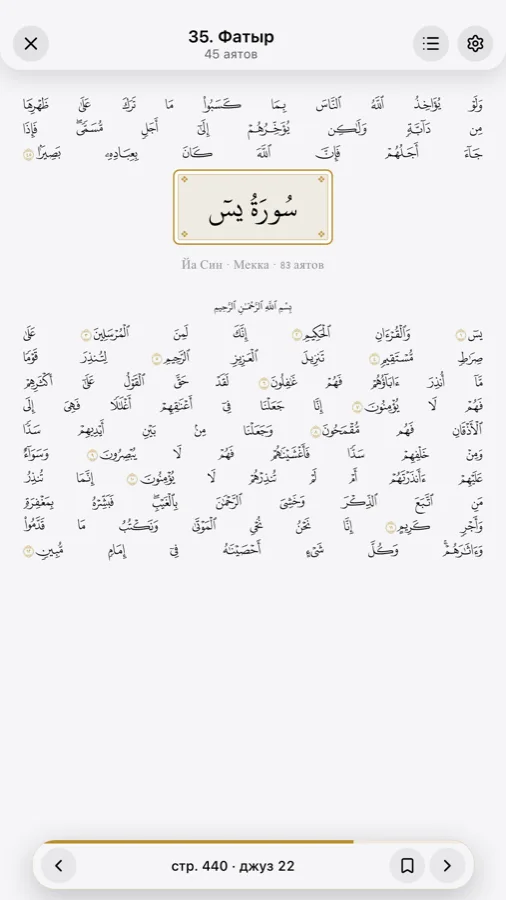 35. Фатыр
45 аятов
وَلَوْ يُؤَاخِذُ ٱللَّهُ ٱلنَّاسَ بِمَا كَسَبُوا۟ مَا تَرَكَ عَلَىٰ ظَهْرِهَا
مِن دَآبَّةٍ وَلَـٰكِن يُؤَخِّرُهُمْ إِلَىٰٓ أَجَلٍ مُّسَمًّى ۖ فَإِذَا
جَآءَ أَجَلُهُمْ فَإِنَّ ٱللَّهَ كَانَ بِعِبَادِهِۦ بَصِيرًۢا ٤٥
سُورَةُ يسٓ
Йа Син · Мекка · 83 аятов
بِسْمِ ٱللَّهِ ٱلرَّحْمَـٰنِ ٱلرَّحِيمِ
يسٓ ١ وَٱلْقُرْءَانِ ٱلْحَكِيمِ ٢ إِنَّكَ لَمِنَ ٱلْمُرْسَلِينَ ٣ عَلَىٰ
صِرَٰطٍ مُّسْتَقِيمٍ ٤ تَنزِيلَ ٱلْعَزِيزِ ٱلرَّحِيمِ ٥ لِتُنذِرَ قَوْمًا
مَّآ أُنذِرَ ءَابَآؤُهُمْ فَهُمْ غَـٰفِلُونَ ٦ لَقَدْ حَقَّ ٱلْقَوْلُ عَلَىٰٓ أَكْثَرِهِمْ
فَهُمْ لَا يُؤْمِنُونَ ٧ إِنَّا جَعَلْنَا فِىٓ أَعْنَـٰقِهِمْ أَغْلَـٰلًا فَهِىَ إِلَى
ٱلْأَذْقَانِ فَهُم مُّقْمَحُونَ ٨ وَجَعَلْنَا مِنۢ بَيْنِ أَيْدِيهِمْ سَدًّا
وَمِنْ خَلْفِهِمْ سَدًّا فَأَغْشَيْنَـٰهُمْ فَهُمْ لَا يُبْصِرُونَ ٩ وَسَوَآءٌ
عَلَيْهِمْ ءَأَنذَرْتَهُمْ أَمْ لَمْ تُنذِرْهُمْ لَا يُؤْمِنُونَ ١٠ إِنَّمَا تُنذِرُ
مَنِ ٱتَّبَعَ ٱلذِّكْرَ وَخَشِىَ ٱلرَّحْمَـٰنَ بِٱلْغَيْبِ ۖ فَبَشِّرْهُ بِمَغْفِرَةٍ
وَأَجْرٍ كَرِيمٍ ١١ إِنَّا نَحْنُ نُحْىِ ٱلْمَوْتَىٰ وَنَكْتُبُ مَا قَدَّمُوا۟
وَءَاثَـٰرَهُمْ ۚ وَكُلَّ شَىْءٍ أَحْصَيْنَـٰهُ فِىٓ إِمَامٍ مُّبِينٍ ١٢
стр. 440 · джуз 22